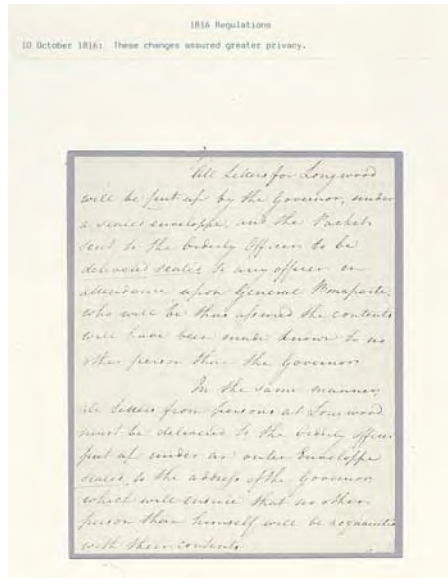 1816 Regulations
10 October 1816: These changes assured greater privacy.
All Letters for Longwood
will be put up by the Governor, under
a sealed enveloppe, and the Packet
sent to the Orderly Officer to be
delivered sealed to any officer in
attendance upon General Bonaparte,
who will be thus assured the contents
will have been made known to no
other person than the Governor
In the same manner,
all Letters from persons at Longwood
must be delivered to the Orderly Officer
put up under an outer Enveloppe
sealed, to the address of the Governor
which will ensure that no other
person than himself will be acquainted
with their contents.